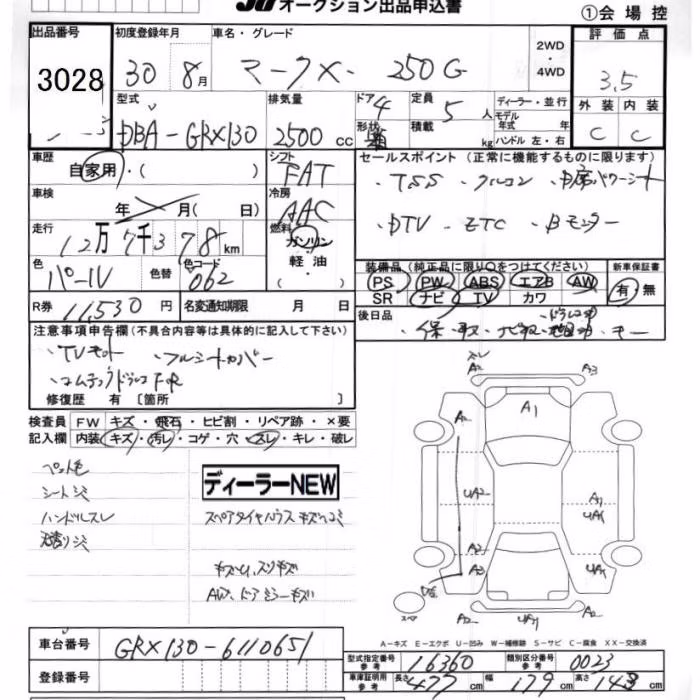 オークション出品申込書
①会場控
出品番号 初度登録年月 車名・グレード 2WD・4WD 評価点
3028 30 8月 マークX 250G 3.5
型式 排気量 ドア 4 定員 5人 ディーラー・並行
外装 内装
DBA-GRX130 2500cc 形状 積載 kg モデル年式 年 ハンドル 左・右
C C
車歴 シフト セールスポイント (正常に機能するものに限ります)
自家用・( ) FAT ・TSS ・クルコン ・中席パワーシート
車検 冷房 ・DTV ・ETC ・Bモニター
年 月(日) AAC
走行 燃料
12万7千378km ガソリン
軽油・
装備品 (純正品に限り○をつけてください) 新車保証書
色 色替 色コード
パール 062
PS PW ABS エアB AW 有・無
SR ナビ TV カワ
R券 11,530円 名変通知期限 月 日
後日品
注意事項申告欄(不具合内容等は具体的に記入して下さい)
・TVキット ・フルシートカバー
・コムテックドラレコF・R
修復歴 有 〔箇所 〕
検査員記入欄 FW キズ・飛石・ヒビ割・リペア跡・×要
内装 キズ・汚レ・コゲ・穴・スレ・キレ・破レ
ペット毛
シートシミ
ハンドルスレ
天張りシミ
ディーラーNEW
スペアタイヤハウス キズヘコミ
キズ凹、スリキズ
AW、ドアミラーキズ
スレ
A2 A3
A2 A1
UA2 A1
UA1
A2
A3 A2
A2 UA1 A2
スペア
A-キズ E-エクボ U-凹み W-補修跡 S-サビ C-腐食 XX-交換済
車台番号 GRX130-6110651
登録番号
型式指定番号 参考 16360 類別区分番号 参考 0023
車庫証明用 参考 長さ 477cm 幅 179cm 高さ 143cm